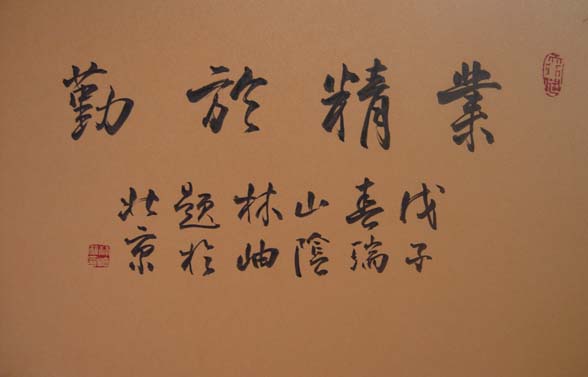 業精於勤
戊子
春瑞
山陰
林岫
題於
北京